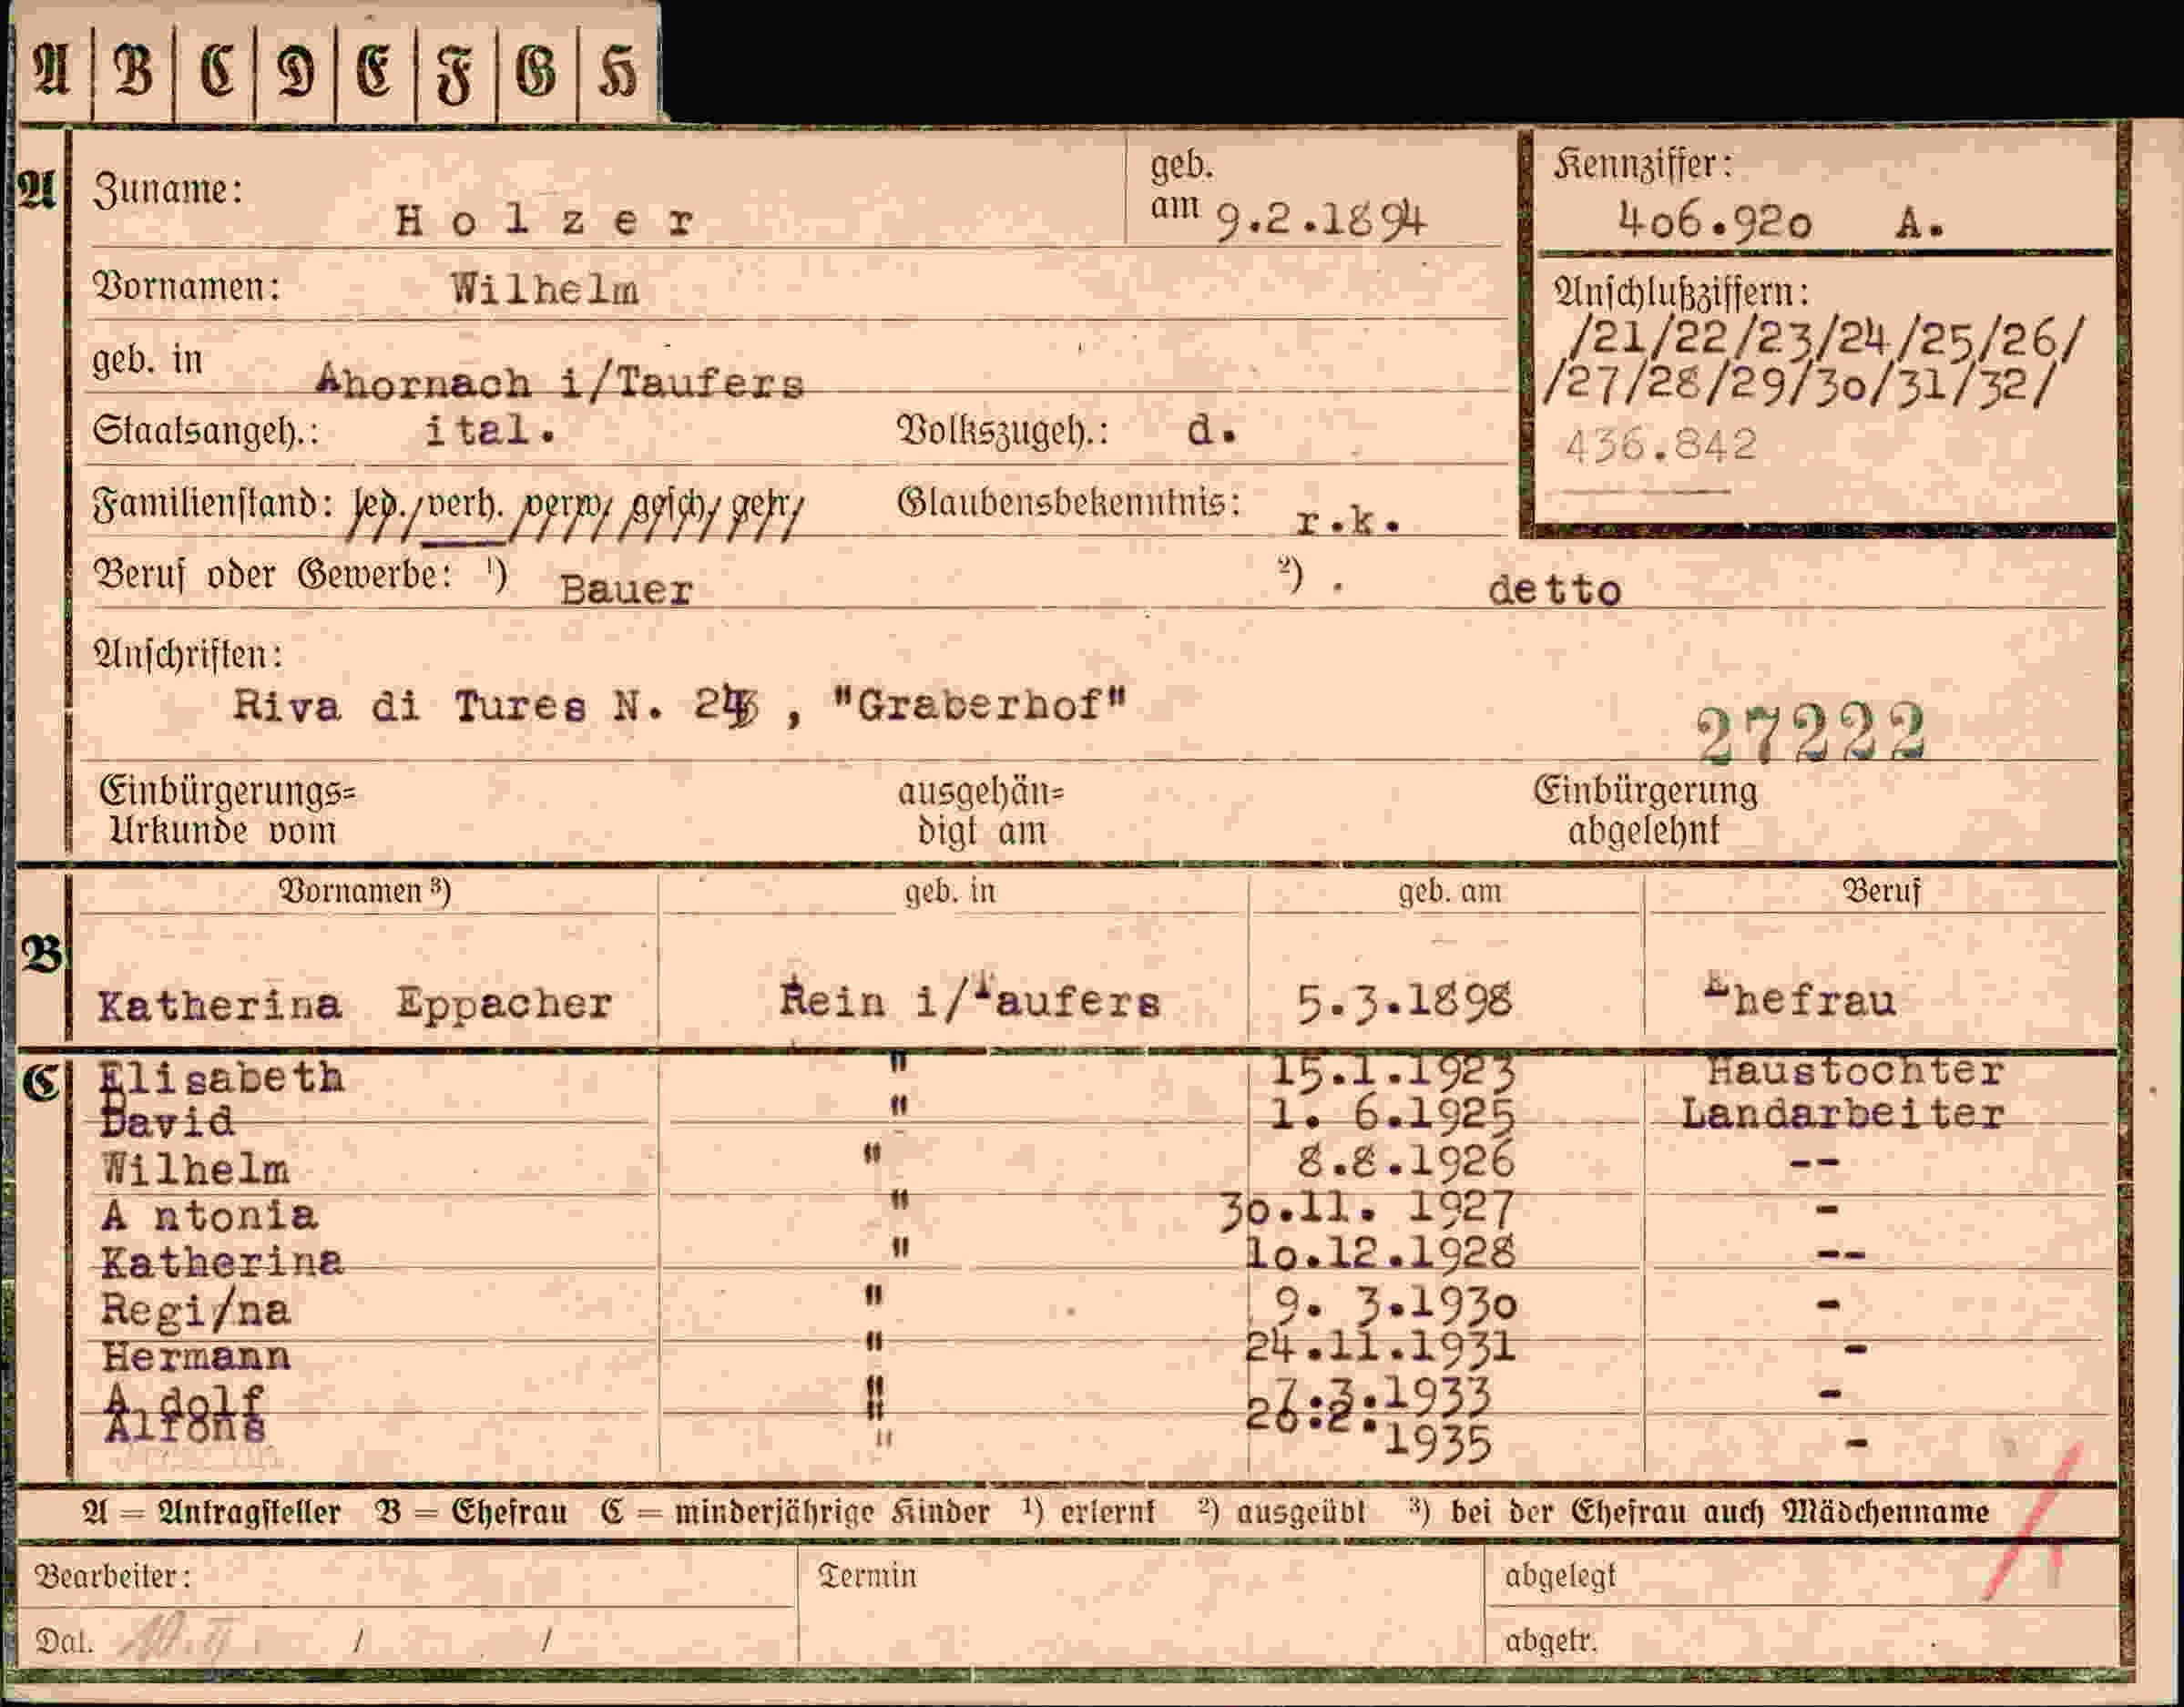 A B C D E F G H
A
Zuname: Holzer
geb. am 9.2.1894
Kennziffer:
406.920 A.
Vornamen: Wilhelm
Anschlußziffern:
/21/22/23/24/25/26/
/27/28/29/30/31/32/
436.842
geb. in Ahornach i/Taufers
Staatsangeh.: ital. Volkszugeh.: d.
Familienstand: led./verh. verw/ gesch/ getr/ Glaubensbekenntnis: r.k.
Beruf oder Gewerbe: ¹) Bauer ²) . detto
Anschriften:
Riva di Tures N. , "Graberhof"
27222
Einbürgerungs= ausgehän= Einbürgerung
Urkunde vom digt am abgelehnt
Vornamen ³) geb. in geb. am Beruf
B
Katherina Eppacher Rein i/Taufers 5.3.1898 Ehefrau
C Elisabeth " 15.1.1923 Haustochter
David " 1. 6.1925 Landarbeiter
Wilhelm " 8.8.1926 --
A ntonia " 30.11. 1927 -
Katherina " 10.12.1928 --
Regi/na " 9. 3.1930 -
Hermann " 24.11.1931 -
A dolf " 7.3.1933 -
Alfons " 26.2.1935 -
A = Antragsteller B = Ehefrau C = minderjährige Kinder ¹) erlernt ²) ausgeübt ³) bei der Ehefrau auch Mädchenname
Bearbeiter: Termin abgelegt
Dat. / / abgetr.